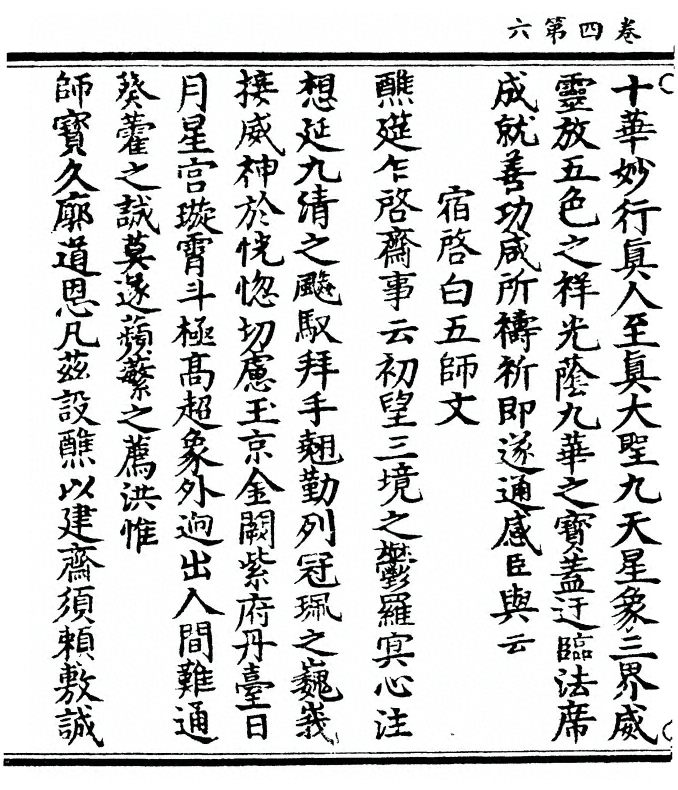 卷四第六
十華妙行眞人至眞大聖九天星象三界威
靈放五色之祥光蔭九華之寶蓋迂臨法席
成就善功咸所禱祈即遂通感臣與云
宿啓白五師文
醮筵乍啓齋事云初望三境之鬱羅冥心注
想延九清之飈馭拜手翹勤列冠珮之巍峩
接威神於恍惚切慮玉京金闕紫府丹臺日
月星宫璇霄斗極高超象外逈出人間難通
葵藿之誠莫遂蘋蘩之薦洪惟
師寶久廓道恩凡茲設醮以建齋須頼敷誠